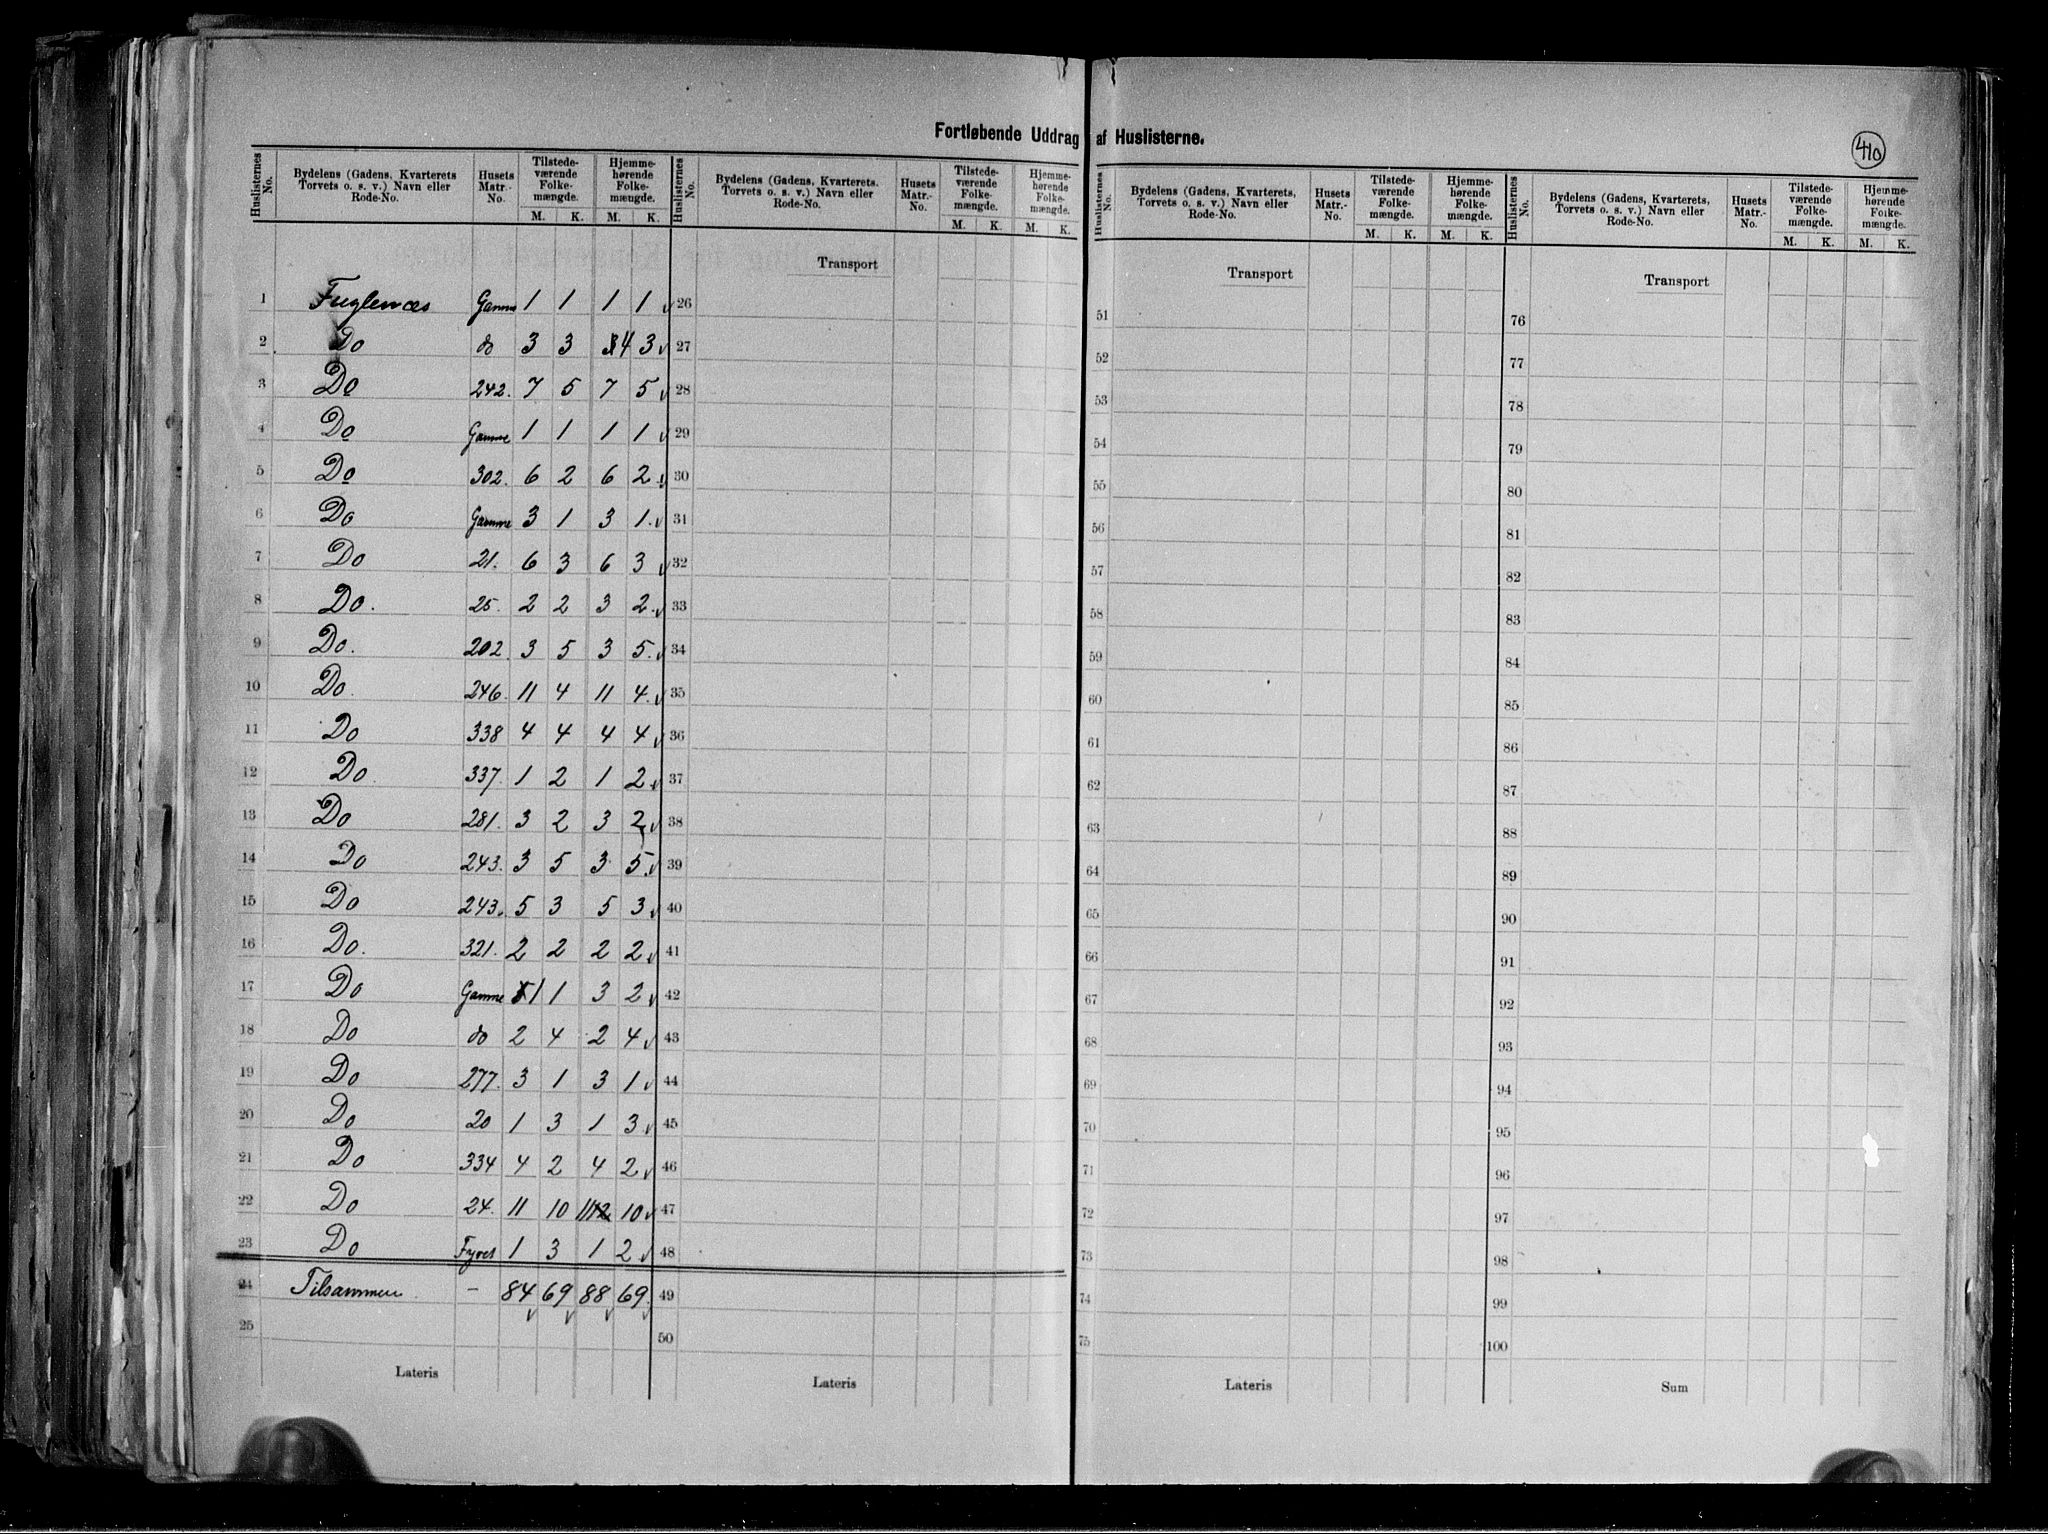 Fortløbende Uddrag af Huslisterne.
410
Huslisternes No. Bydelens (Gadens, Kvarterets Torvets o. s. v.) Navn eller Rode-No. Husets Matr.-No. Tilstedeværende Folkemængde. M. K. Hjemmehørende Folkemængde. M. K.
Huslisternes No. Bydelens (Gadens, Kvarterets, Torvets o. s. v.) Navn eller Rode-No. Husets Matr.-No. Tilstedeværende Folkemængde. M. K. Hjemmehørende Folkemængde. M. K.
Huslisternes No. Bydelens (Gadens, Kvarterets, Torvets o. s. v.) Navn eller Rode-No. Husets Matr.-No. Tilstedeværende Folkemængde. M. K. Hjemmehørende Folkemængde. M. K.
Huslisternes No. Bydelens (Gadens, Kvarterets, Torvets o. s. v.) Navn eller Rode-No. Husets Matr.-No. Tilstedeværende Folkemængde. M. K. Hjemmehørende Folkemængde. M. K.
Transport Transport Transport
1 Fuglenæs Gamme 1 1 1 1 26 51 76
2 Do do 3 3 4 3 27 52 77
3 Do 242. 7 5 7 5 28 53 78
4 Do Gamme 1 1 1 1 29 54 79
5 Do 302. 6 2 6 2 30 55 80
6 Do Gamme 3 1 3 1. 31 56 81
7 Do 21. 6 3 6 3 32 57 82
8 Do. 25. 2 2 3 2. 33 58 83
9 Do. 202. 3 5 3 5. 34 59 84
10 Do. 246. 11 4 11 4. 35 60 85
11 Do 338 4 4 4 4 36 61 86
12 Do. 337. 1 2 1 2 37 62 87
13 Do 281. 3 2 3 2 38 63 88
14 Do 243. 3 5 3 5. 39 64 89
15 Do 243. 5 3 5 3 40 65 90
16 Do. 321. 2 2 2 2 41 66 91
17 Do Gamme 1 1 3 2 42 67 92
18 Do do 2 4 2 4 43 68 93
19 Do 277. 3 1 3 1 44 69 94
20 Do 20 1 3 1 3 45 70 95
21 Do 334 4 2 4 2 46 71 96
22 Do 24. 11 10 11 10 47 72 97
23 Do Fyret 1 3 1 2 48 73 98
24 Tilsammen. — 84 69 88 69. 49 74 99
25 50 75 100
Lateris Lateris Lateris Sum